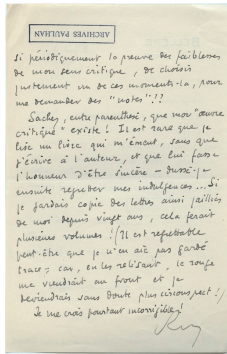 ARCHIVES PAULHAN
si périodiquement la preuve des faiblesses
de mon sens critique, de choisir
justement un de ces moments-là, pour
me demander des "notes"??
Sachez, entre parenthèses, que mon "œuvre
critique" existe! Il est rare que je
lise un livre qui m'émeut, sans que
j'écrive à l'auteur, et que lui fasse
l'honneur d'être sincère — dussé-je
ensuite regretter mes indulgences... Si
je gardais copie des lettres ainsi jaillies
de moi depuis vingt ans, cela ferait
plusieurs volumes! Il est regrettable
peut-être que je n'en aie pas gardé
trace; car, en les relisant, le rouge
me viendrait au front et je
deviendrais sans doute plus circonspect!
Je me crois pourtant incorrigible!